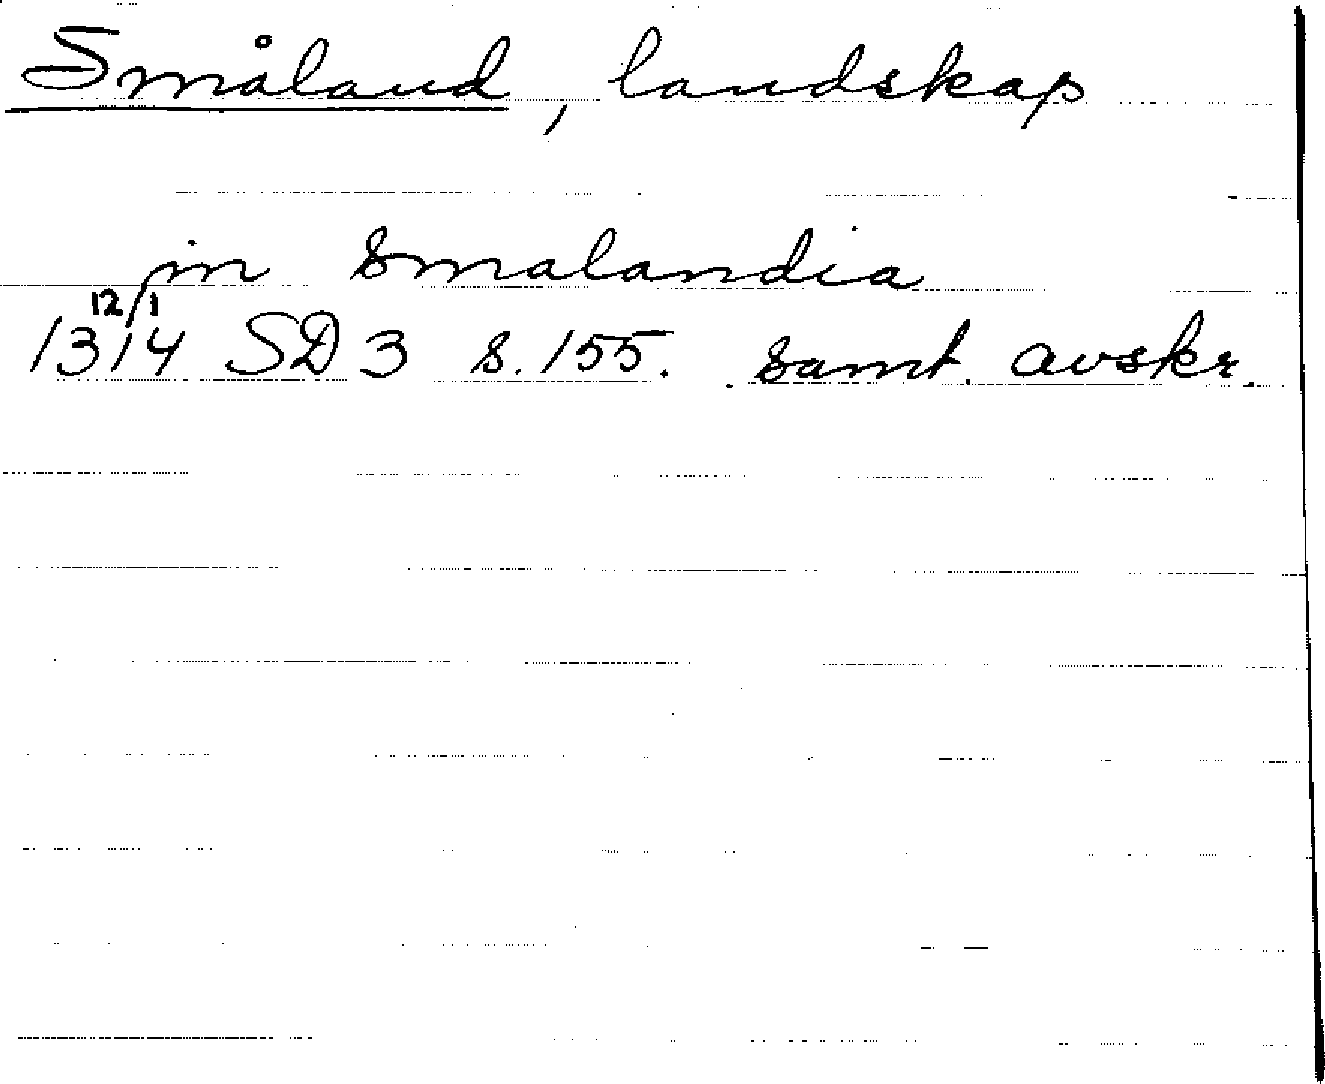 Småland, landskap
in Smalandia
12/1
1314 SD 3 s. 155. samt. avskr.